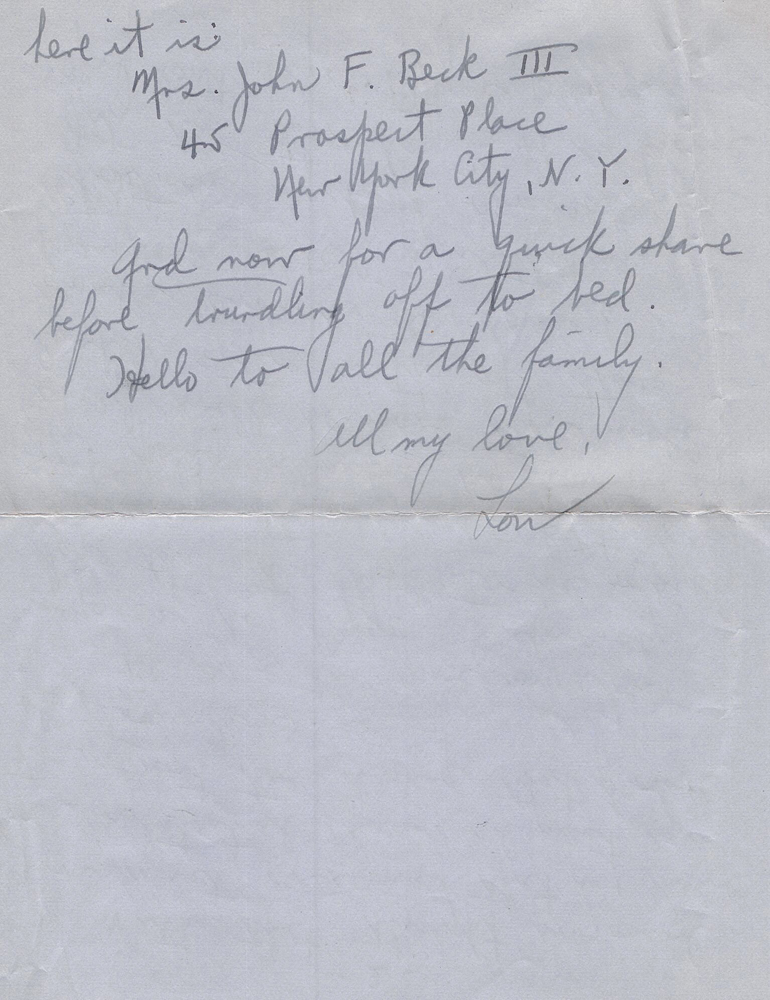 here it is:
Mrs. John F. Beck III
45 Prospect Place
New York City, N. Y.
And now for a quick shave
before trundling off to bed.
Hello to all the family.
All my love,
Lou